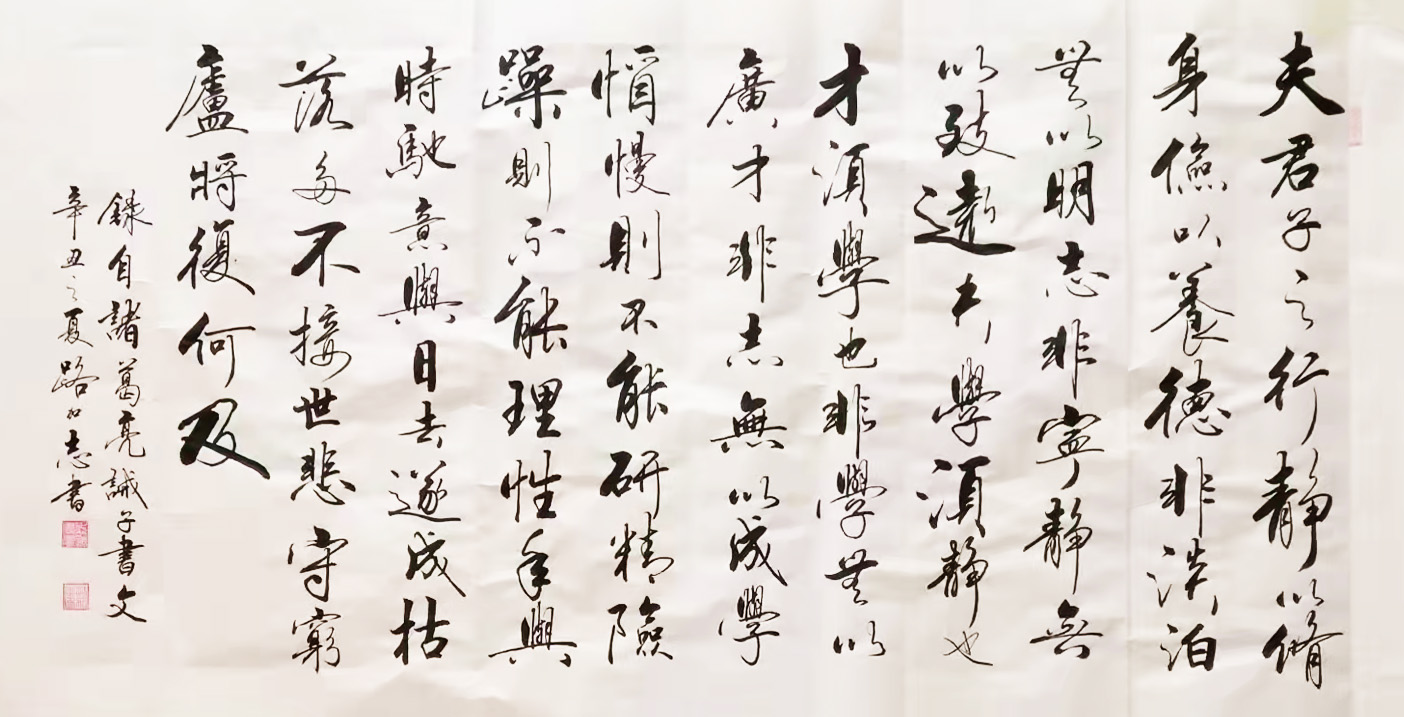 夫君子之行静以脩
身儉以養德非淡泊
無以明志非寧静無
以致遠夫學須静也
才須學也非學無以
廣才非志無以成學
慆慢則不能研精險
躁則不能理性年與
時馳意與日去遂成枯
落多不接世悲守窮
廬將復何及
録自諸葛亮誡子書文
辛丑之夏路加志書